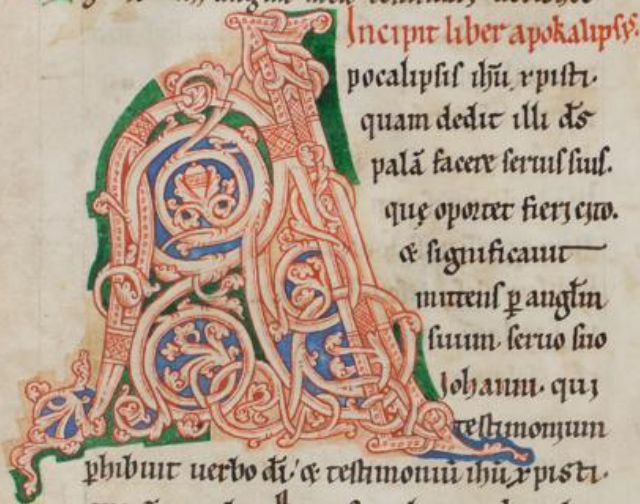 Incipit liber apokalipsis.
Apocalipsis ih̄u xpisti.
quam dedit illi d̄s
palā facere seruis suis.
quę oportet fieri cito.
& significauit
mittens p̱ angl̄m
suum. seruo suo
Johanni. qui
testimonium
phibuit uerbo dī. & testimoniū ih̄u xpisti.